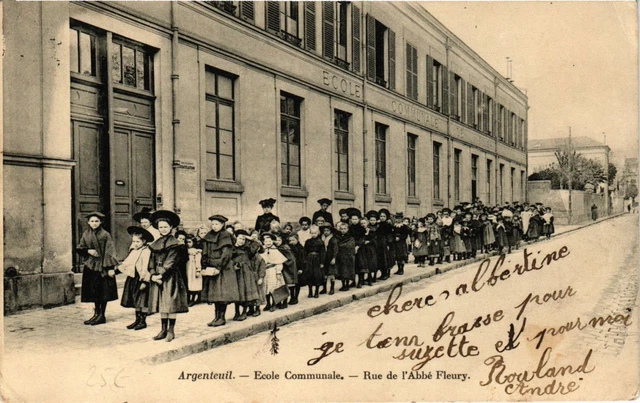 ECOLE COMMUNALE
chere albertine
je t'enn brasse pour
suzette et pour moi
Rowland
André
Argenteuil. — Ecole Communale. — Rue de l'Abbé Fleury.
25€